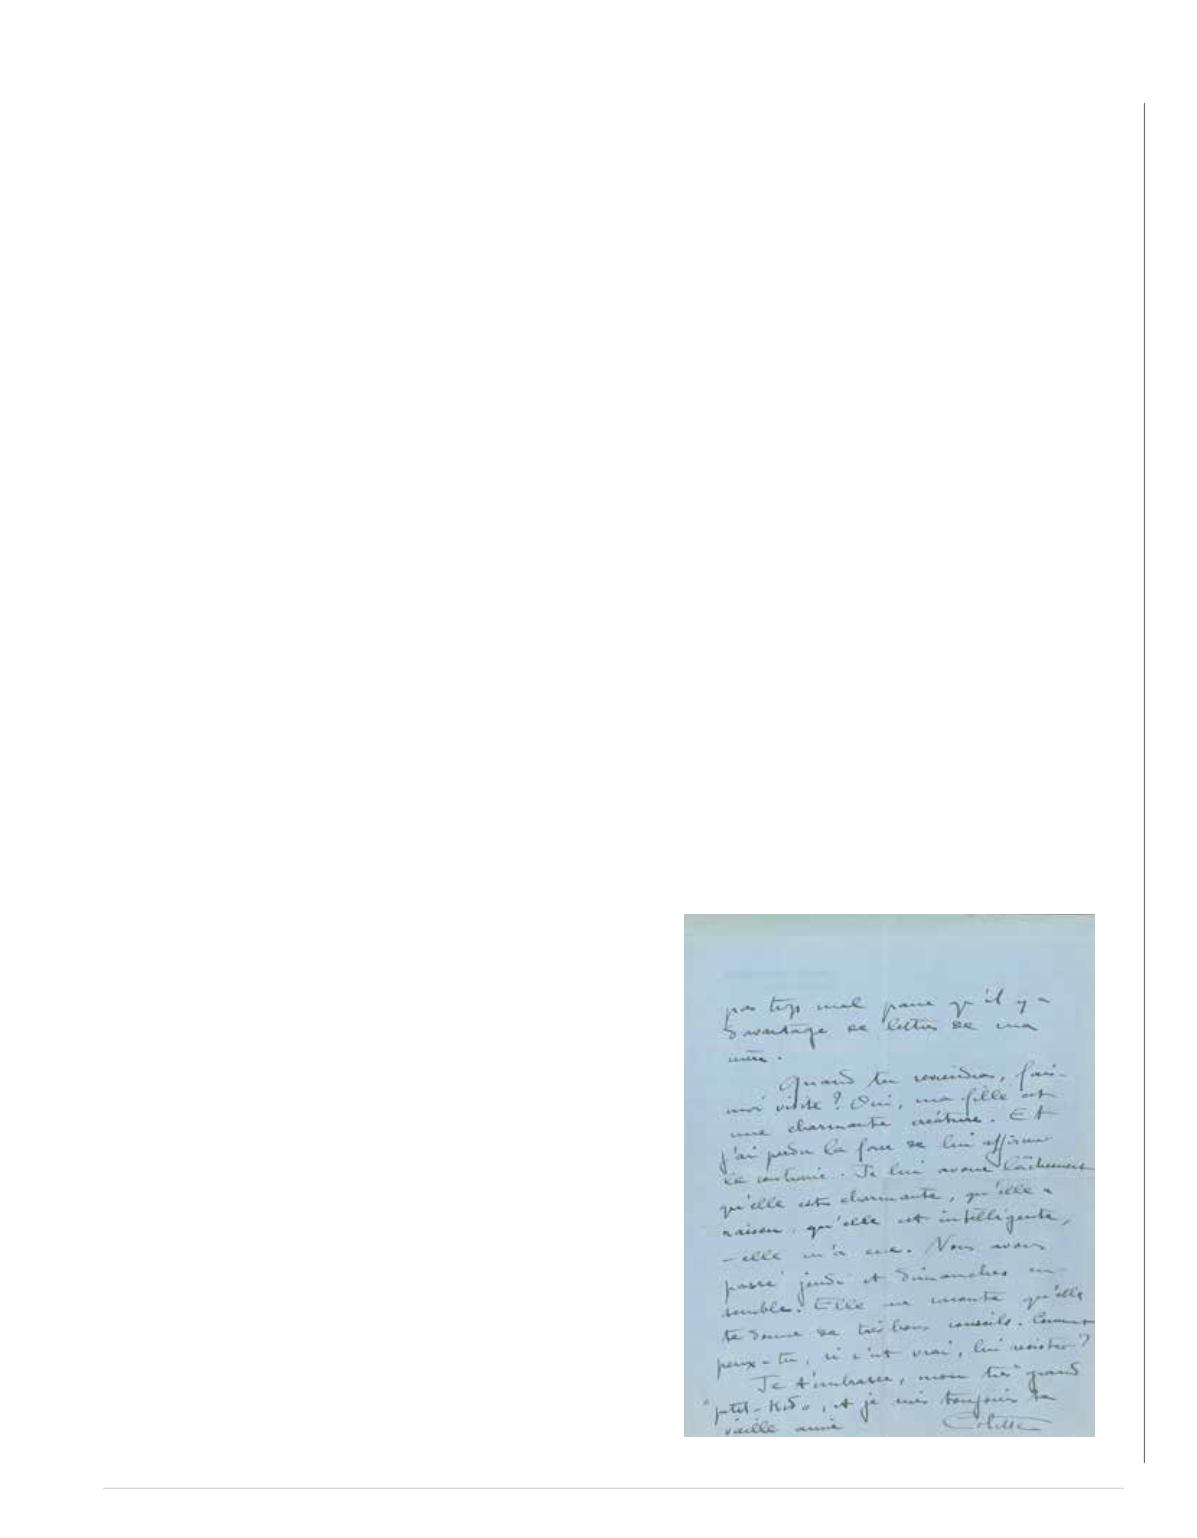 pas trop mal parce qu'il y a
davantage de lettres de ma
mère.
Quand tu reviendras, fais-
moi visite ? Oui, ma fille est
une charmante créature. Et
j'ai perdu la force de lui affirmer
le contraire. Je lui avoue lâchement
qu'elle est charmante, qu'elle a
raison, qu'elle est intelligente,
– elle m'a eue. Nous avons
passé jeudi et dimanches en-
semble. Elle me raconte qu'elle
te donne de très bons conseils. Comment
peux-tu, si c'est vrai, lui résister ?
Je t'embrasse, mon très grand
"petit-Kid", et je suis toujours ta
vieille amie Colette